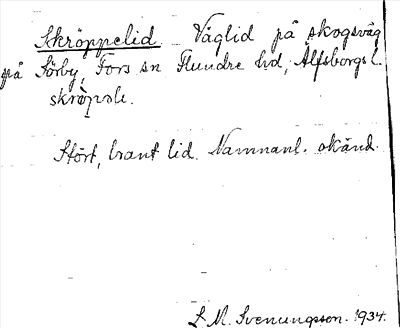 Skröppelid Väglid på skogsväg
på Sörby, Fors sn Flundre hd, Älfsborgs l.
Stört, brant lid. Namnanl. okänd.
S. M. Svenungsson. 1934.